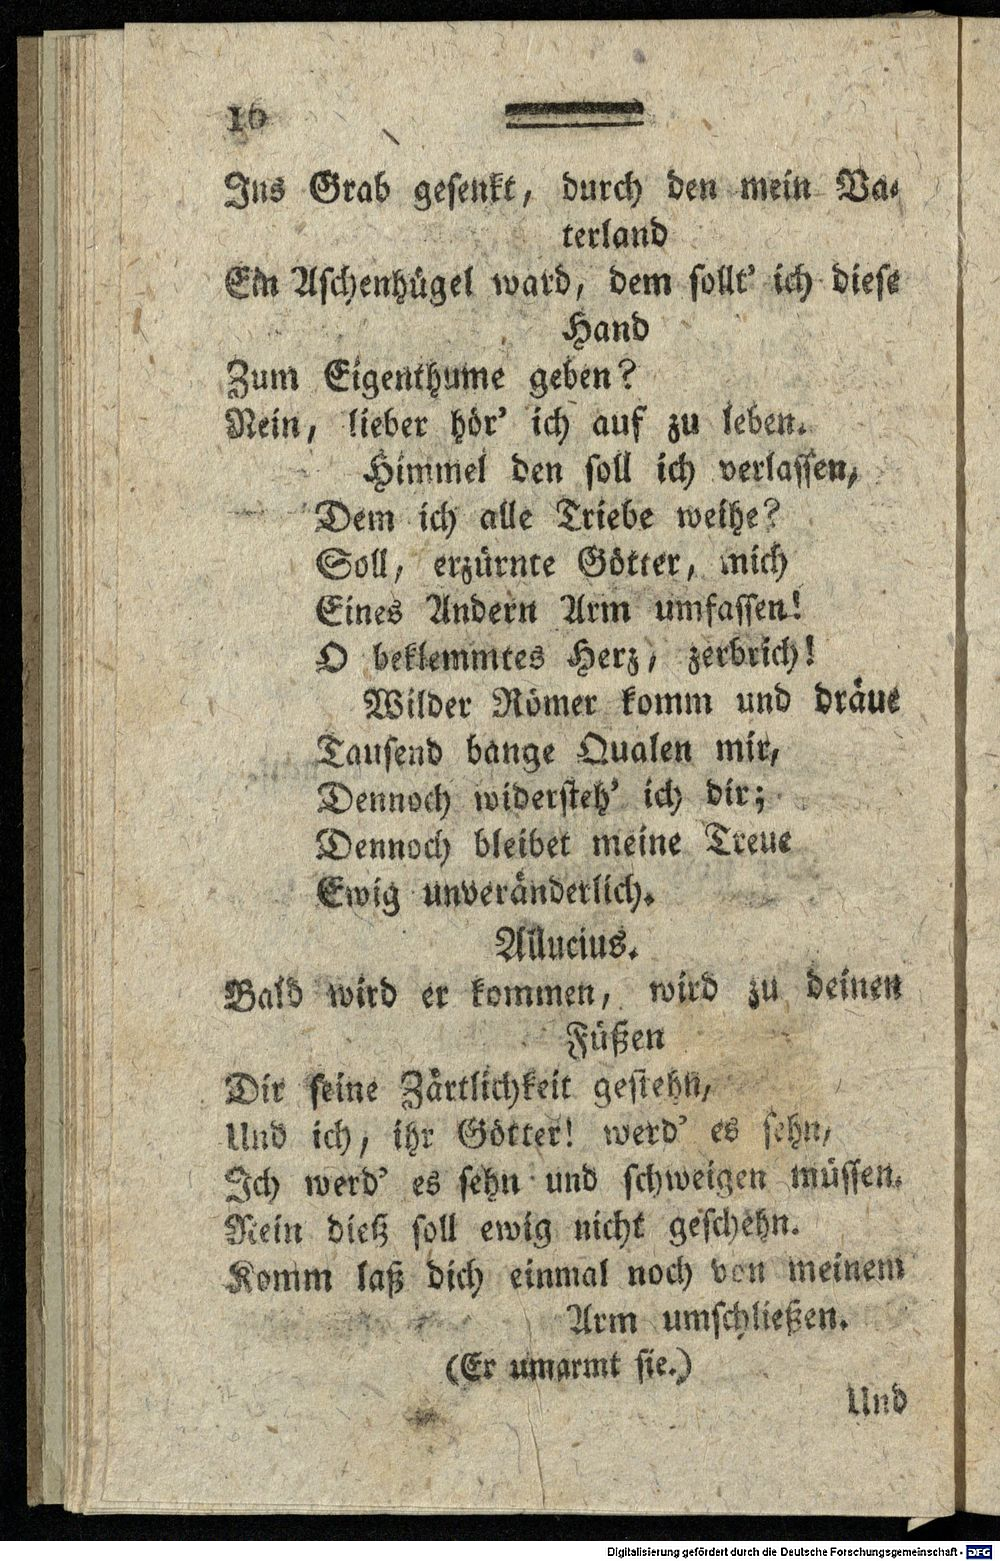 16
Ins Grab gesenkt, durch den mein Va-
terland
Ein Aschenhügel ward, dem sollt' ich diese
Hand
Zum Eigenthume geben?
Nein, lieber hör' ich auf zu leben.
Himmel den soll ich verlassen,
Dem ich alle Triebe weihe?
Soll, erzürnte Götter, mich
Eines Andern Arm umfassen!
O beklemmtes Herz, zerbrich!
Wilder Römer komm und dräue
Tausend bange Qualen mir,
Dennoch widersteh' ich dir;
Dennoch bleibet meine Treue
Ewig unveränderlich.
Allucius.
Bald wird er kommen, wird zu deinen
Füßen
Dir seine Zärtlichkeit gestehn,
Und ich, ihr Götter! werd' es sehn,
Ich werd' es sehn und schweigen müssen.
Nein dieß soll ewig nicht geschehn.
Komm laß dich einmal noch von meinem
Arm umschließen.
(Er umarmt sie.)
Und
Digitalisierung gefördert durch die Deutsche Forschungsgemeinschaft - DFG